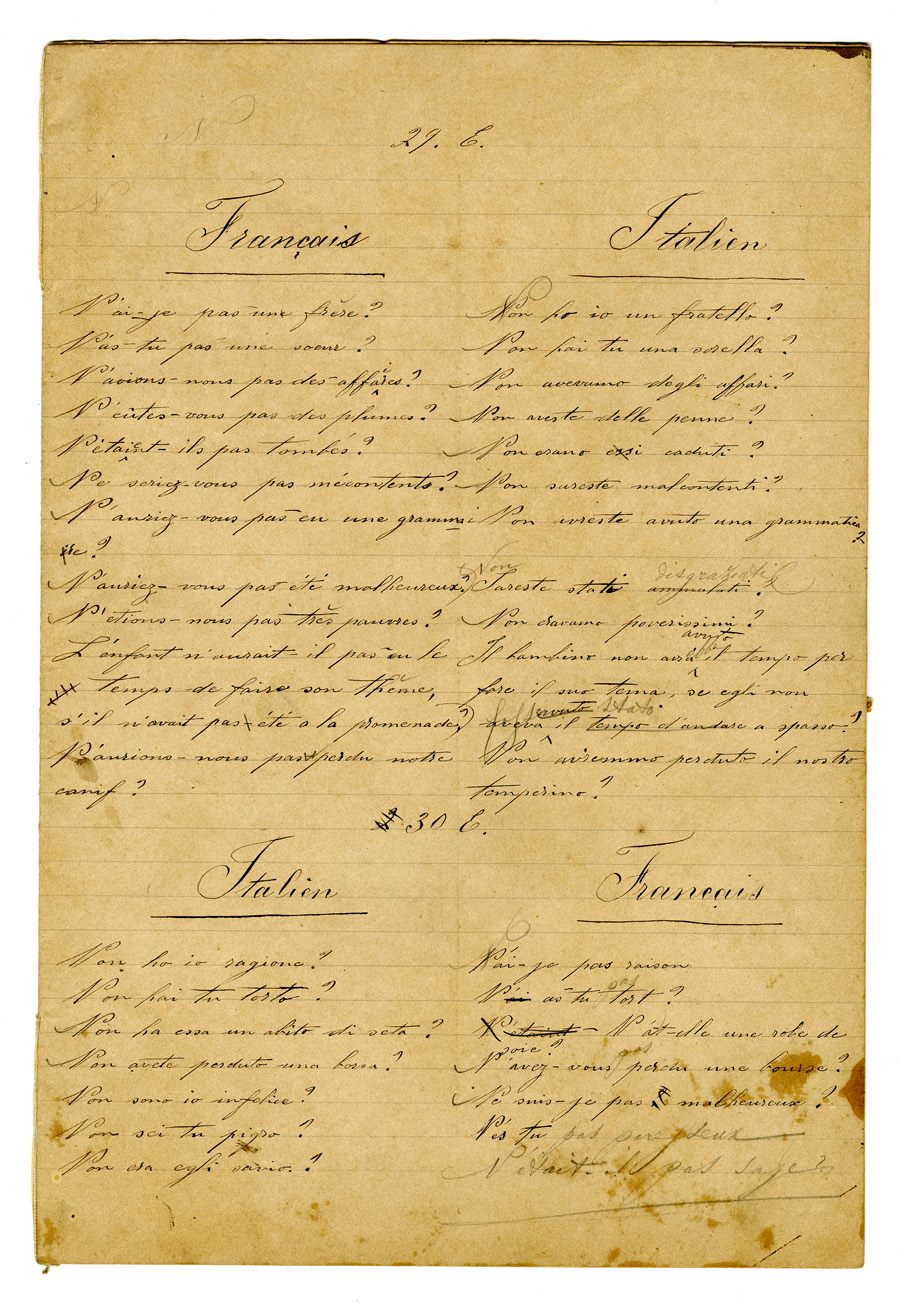 29. E.
Français
N'ai-je pas une frère?
N'as-tu pas une soeur?
N'avions-nous pas des affaires?
N'eûtes-vous pas des plumes?
N'étaient-ils pas tombés?
Ne seriez-vous pas mécontents?
N'auriez-vous pas eu une grammai
re?
N'auriez-vous pas été malheureux?
N'etions-nous pas très pauvres?
L'enfant n'aurait il pas eu le
temps de faire son thème,
s'il n'avait pas été a la promenade?
N'aurions-nous pas perdu notre
canif?
Italien
Non ho io un fratello?
Non hai tu una sorella?
Non avevamo degli affari?
Non aveste delle penne?
Non erano essi caduti?
Non sareste malcontenti?
Non avreste avuto una grammatica?
Non
disgraziati
Sareste stati ammalati?
Non eravamo poverissimi?
avuto
Il bambino non avrà il tempo per
fare il suo tema, se egli non
avuto stato
aveva il tempo d'andare a spasso?
Non avremmo perduto il nostro
temperino?
30 E.
Italien
Non ho io ragione?
Non hai tu torto?
Non ha essa un abito di seta?
Non avete perduto una borsa?
Non sono io infelice?
Non sei tu pigro?
Non era egli savio?
Français
N'ai-je pas raison
pas
N'ai as tu tort?
N'étaient - N'at-elle une robe de
soie?
pas
N'avez-vous perdu une bourse?
Ne suis-je pas malheureux?
N'es tu pas paresseux
N'était-il pas sage?